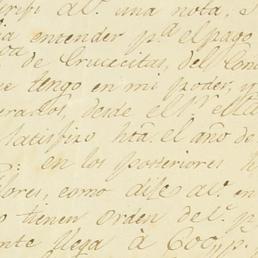 al Sr. una nota, S
a entender pa. el pago
de Crucecitas, del Con
e tengo en mi poder, y
erarlos, desde el
satisfizo hta. el año de
en los posteriores h
lores, como dije al Sr. en
o tienen orden de
nte llega à 600 ps.